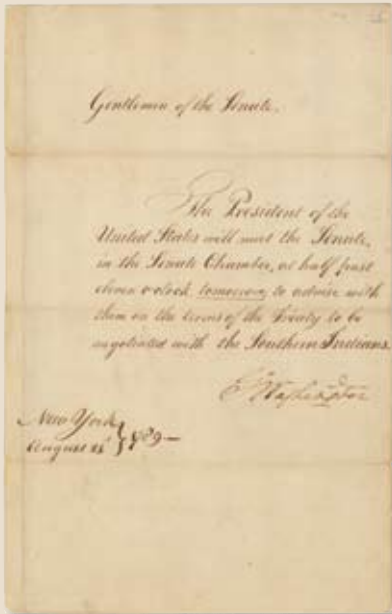 Gentlemen of the Senate.
The President of the
United States will meet the Senate,
in the Senate Chamber, at half past
eleven o'clock, tomorrow, to advise with
them on the terms of the Treaty to be
negotiated with the Southern Indians.
Go Washington
New York
August 21st 1789—